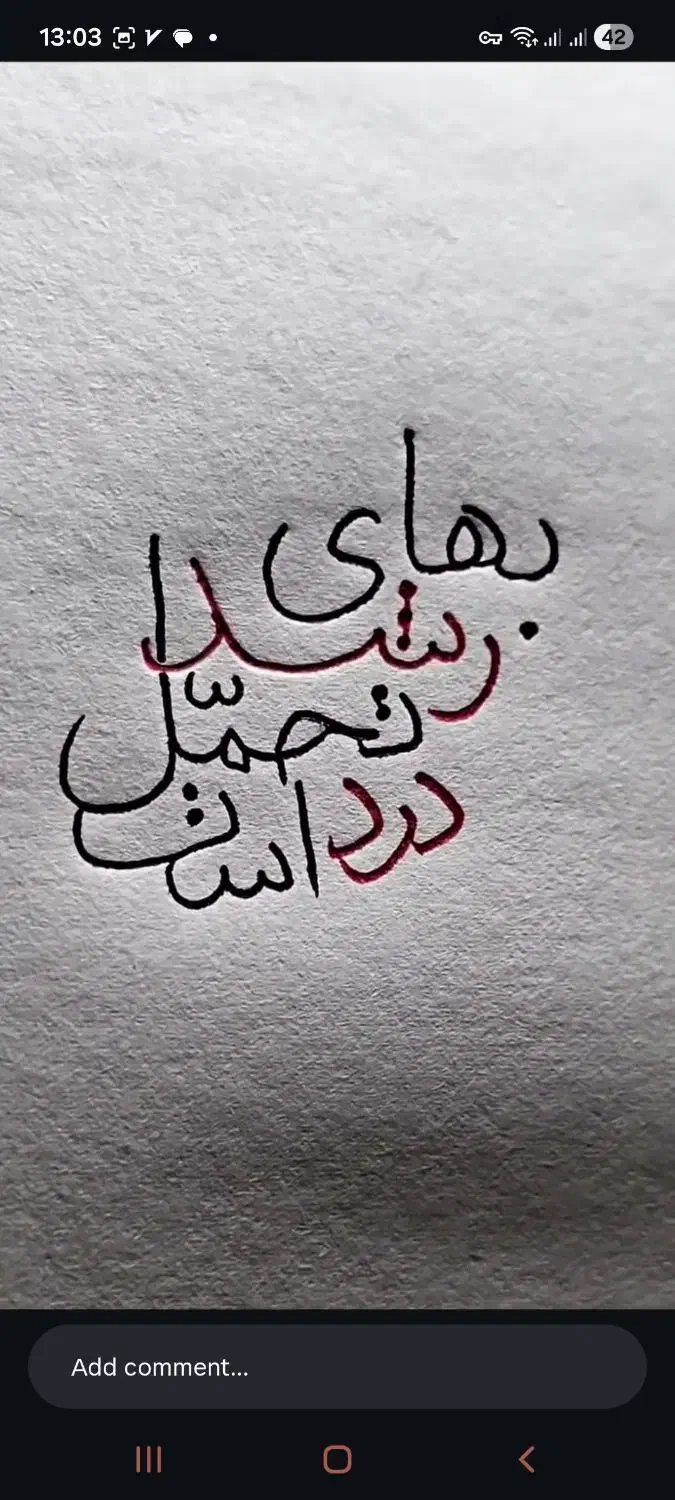 13:03 42
بهای
رشد
تحمّل
درد است
Add comment...